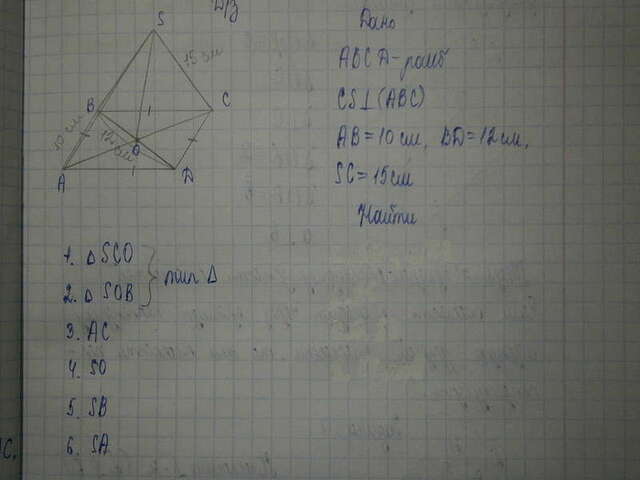 Д/з
S
15 см
B
C
10 см
12 см
O
A
D
Дано
ABCД - ромб
CS⊥(ABC)
AB = 10 см, BD = 12 см,
SC = 15 см
Найти
1. Δ SCO
2. Δ SOB
тип Δ
3. AC
4. SO
5. SB
6. SA